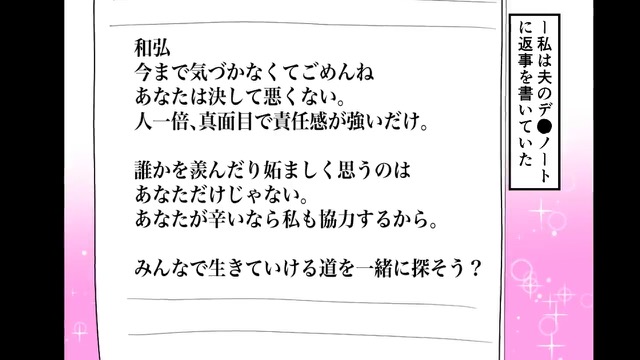 ー私は夫のデ●ノート
に返事を書いていた
和弘
今まで気づかなくてごめんね
あなたは決して悪くない。
人一倍、真面目で責任感が強いだけ。
誰かを羨んだり妬ましく思うのは
あなただけじゃない。
あなたが辛いなら私も協力するから。
みんなで生きていける道を一緒に探そう?